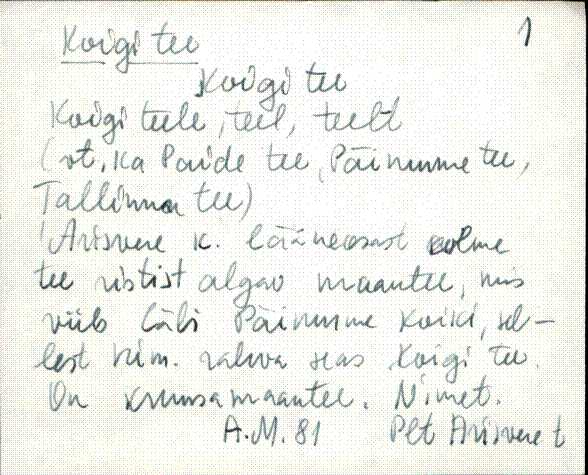 1
Koigi tee
Koigi tee
Koigi teele, teel, teelt
(vt. ka Paide tee, Päinurme tee,
Tallinna tee)
Arisvere k. lääneosast kolme
tee ristist algav maantee, mis
viib läbi Päinurme Koiki, sel-
lest nim. rahva seas Koigi tee.
On kruusamaantee. Nimet.
A.M. 81 Plt Arisvere t